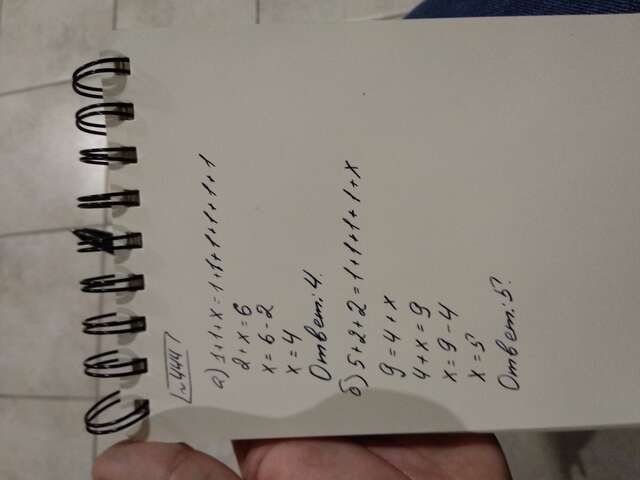 №444
а) 1+1+x=1+1+1+1+1+1
2+x=6
x=6-2
x=4
Ответ: 4.
б) 5+2+2=1+1+1+1+x
9=4+x
4+x=9
x=9-4
x=5
Ответ: 5.